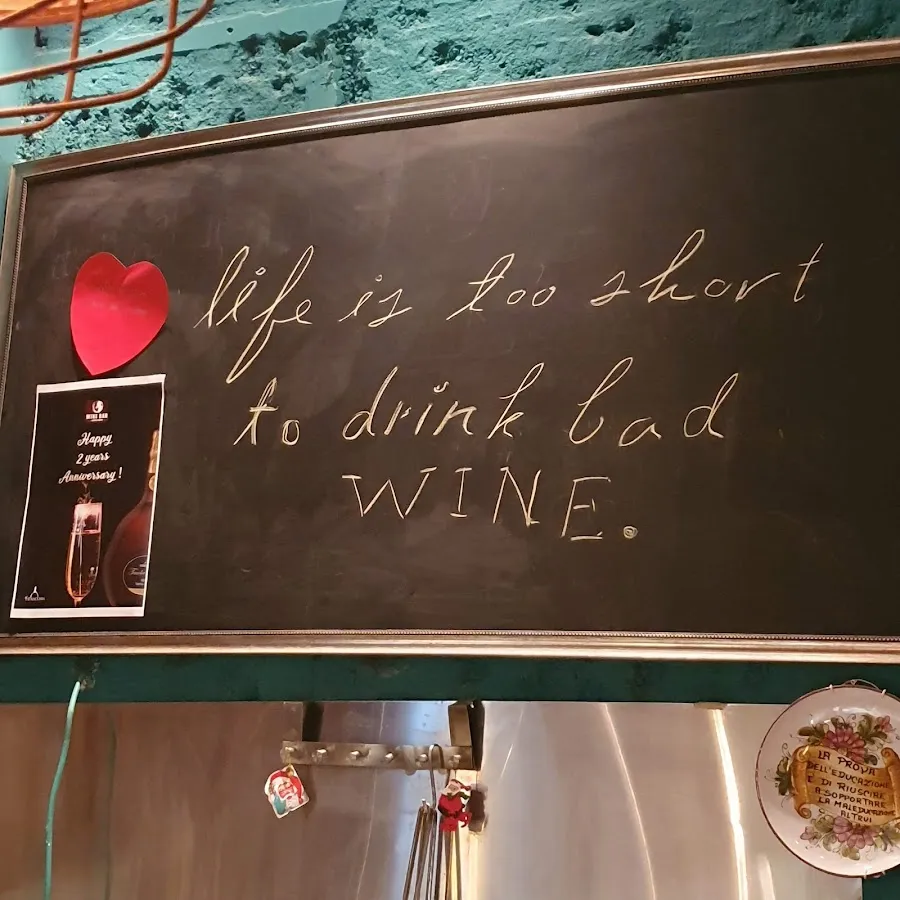 life is too short
to drink bad
WINE.
WINE BAR
Happy
2 years
Anniversary!
LA PROVA
DELL'EDUCAZIONE
E DI RIUSCIRE
A SOPPORTARE
LA MALEDUCAZIONE
ALTRUI